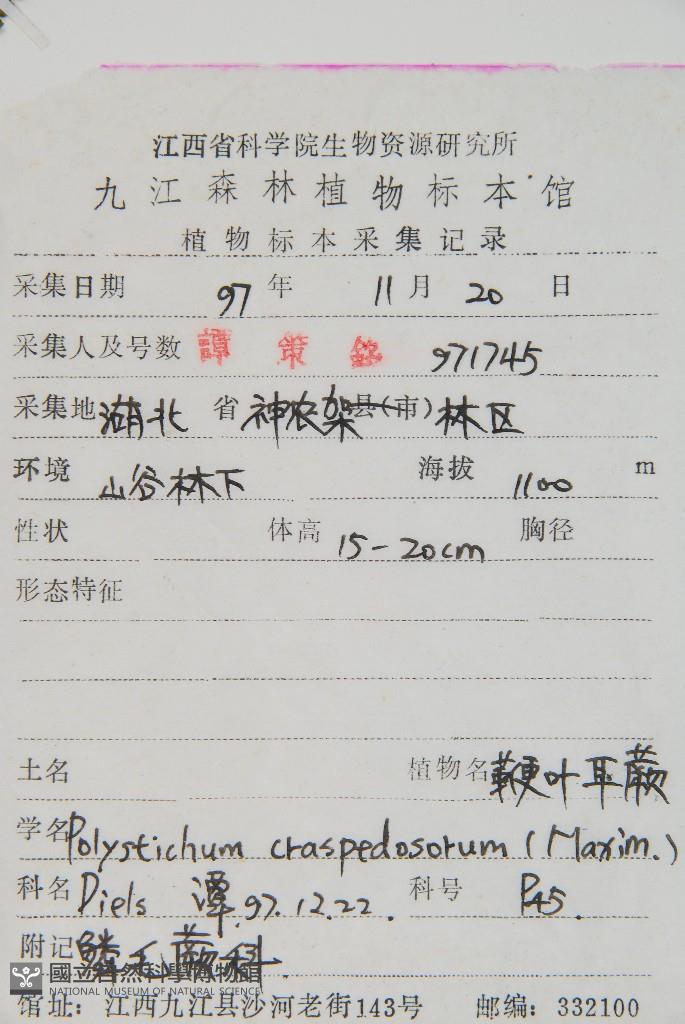 江西省科学院生物资源研究所
九江森林植物标本馆
植物标本采集记录
采集日期 97 年 11 月 20 日
采集人及号数 譚策銘 971745
采集地 湖北 省 神农架县(市) 林区
环境 山谷林下 海拔 1100 m
性状 体高 15-20cm 胸径
形态特征
土名 植物名 鞭叶耳蕨
学名 Polystichum craspedosorum (Maxim.)
科名 Diels 潭 97.12.22. 科号 P45.
附记 鳞毛蕨科
國立自然科學博物館
NATIONAL MUSEUM OF NATURAL SCIENCE
馆址: 江西九江县沙河老街143号 邮编: 332100